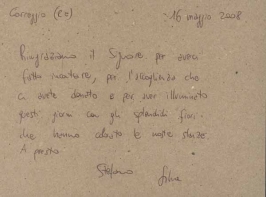 Correggio (RE) 16 maggio 2008
Ringraziamo il Signore per averci
fatto incontrare, per l'accoglienza che
ci avete donato e per aver illuminato
questi giorni con gli splendidi fiori
che hanno adornato le nostre stanze.
A presto
Stefano Silvia